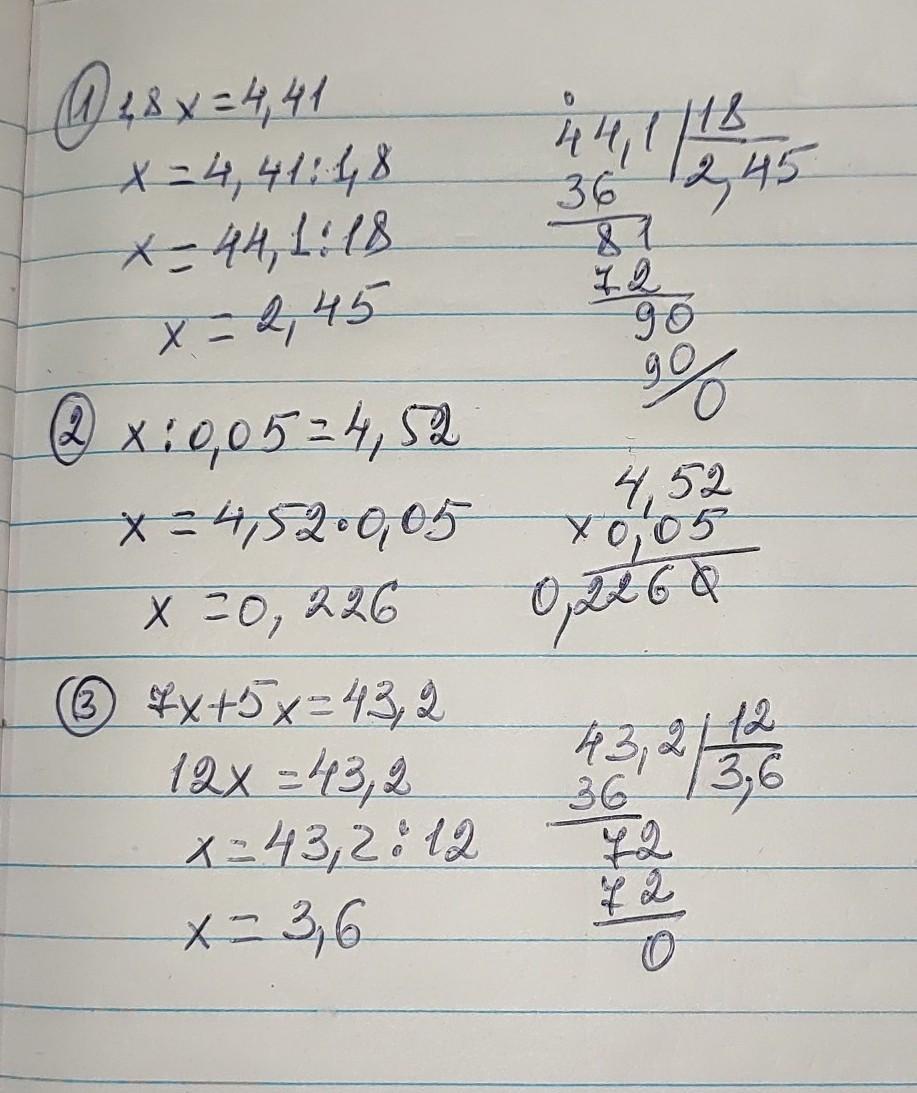 ① 1,8x=4,41
x=4,41:1,8
x=44,1:18
x=2,45
44,1 | 18
36 2,45
81
72
90
90
0
② x:0,05=4,52
x=4,52·0,05
x=0,226
4,52
x0,05
0,2260
③ 7x+5x=43,2
12x=43,2
x=43,2:12
x=3,6
43,2 | 12
36 3,6
72
72
0